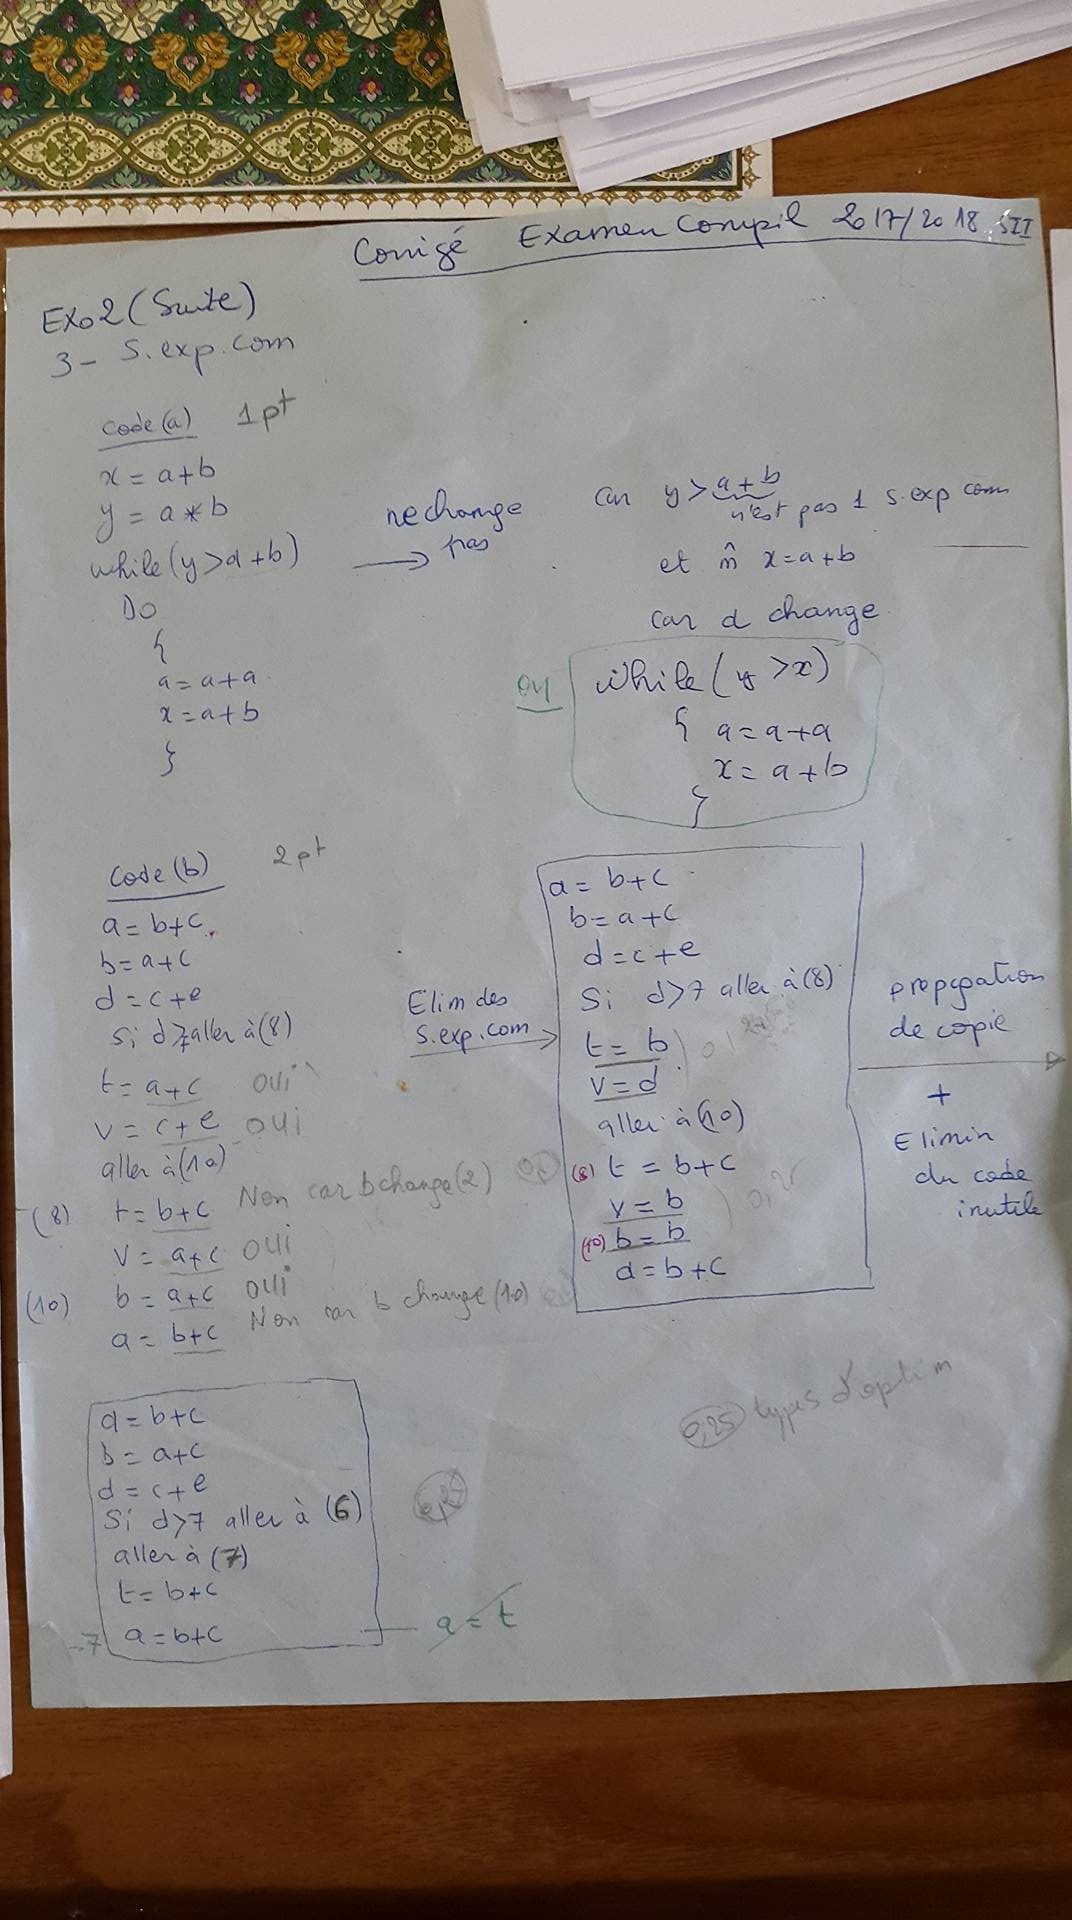 Corrigé Examen Compil 2017/2018 SII
EXo2 (Suite)
3- S.exp.com
code(a) 1pt
x = a+b
y = a*b
while(y>a+b)
Do
{
a = a+a
x = a+b
}
ne change
pas
car y > a+b
n'est pas 1 s.exp com
et m̂ x = a+b
car a change.
ou
while(y>x)
{ a = a+a
x = a+b
}
Code(b) 2pt
a = b+c
b = a+c
d = c+e
Si d>7 aller à (8)
t = a+c oui
v = c+e oui
aller à (10)
(8) t = b+c Non car b change (2)
v = a+c oui
(10) b = a+c oui
a = b+c Non car b change (10)
Elim des
s.exp.com
a = b+c
b = a+c
d = c+e
Si d>7 aller à (8)
t = b
v = d
aller à (10)
(8) t = b+c
v = b
(10) b = b
a = b+c
propagation
de copie
+
Elimin
du code
inutile
a = b+c
b = a+c
d = c+e
Si d>7 aller à (6)
aller à (7)
t = b+c
7 a = b+c
a = t
0,25 types d'optim